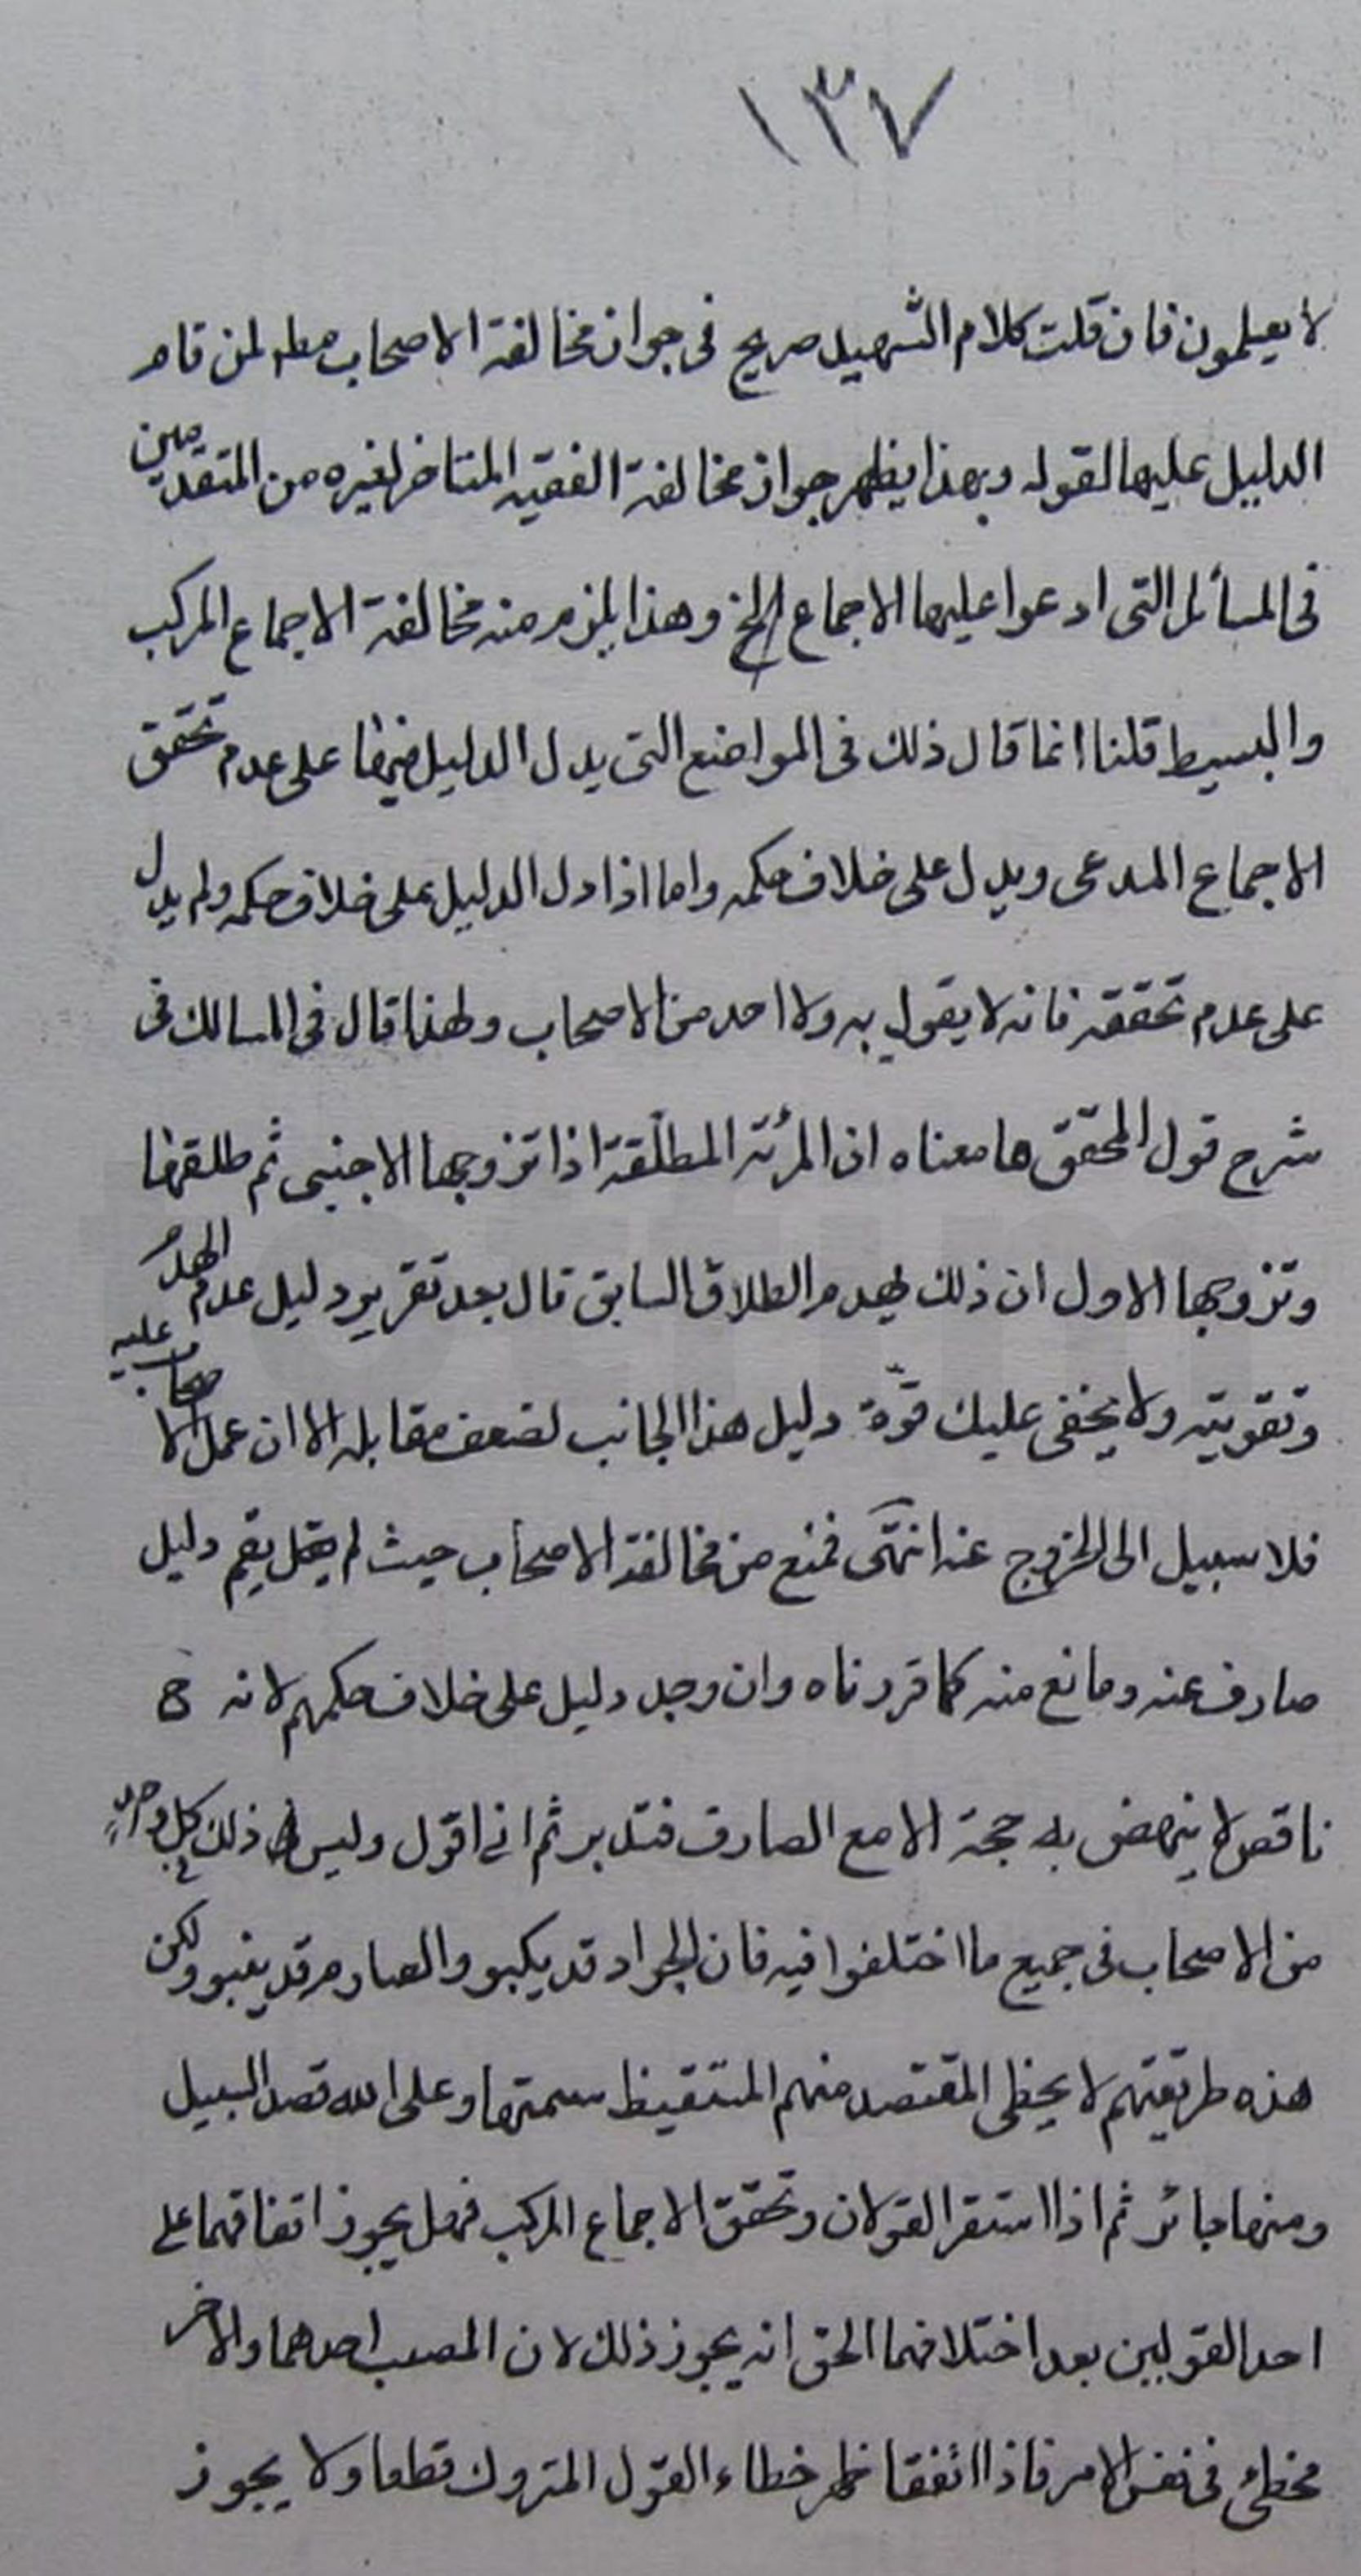 ١٣٧
لا يعيلمون فان قلت كلام الشهيد صريح فى جواز مخالفة الاصحاب مطلقا لمن قام
الدليل عليها لقوله وبهذا يظهر جواز مخالفة الفقيه المتاخر لغيره من المتقدمين
فى المسائل التى ادعوا عليها الاجماع الخ وهذا يلزم منه مخالفة الاجماع المركب
والبسيط قلنا انما قال ذلك فى المواضع التى يدل الدليل فيها على عدم تحقق
الاجماع المدعى ويدل على خلاف حكمه واما اذا دل الدليل على خلاف حكمه ولم يدل
على عدم تحققه فانه لا يقول به ولا احد من الاصحاب ولهذا قال فى المسالك فى
شرح قول المحقق ما معناه ان المرئة المطلّقة اذا تزوجها الاجنبى ثم طلقها
وتزوجها الاول ان ذلك يهدم الطلاق السابق قال بعد تقرير دليل عدم الهدم
وتقويته ولا يخفى عليك قوّة دليل هذا الجانب لضعف مقابله الا ان عمل الاصحاب عليه
فلا سبيل الى الخروج عنه انتهى فمنع من مخالفة الاصحاب حيث لم يقم دليل
صارف عنه ومانع منه كما قررناه وان وجد دليل على خلاف حكمهم لانه ح
ناقص لا ينهض به حجة الا مع الصارف فتدبر ثم انى اقول وليس ذلك كل واحد
من الاصحاب فى جميع ما اختلفوا فيه فان الجواد قد يكبو والصارم قد ينبو ولكن
هذه طريقتهم لا يخطى المقتصد منهم المتقيظ سمتها وعلى الله قصد السبيل
ومنها جائر ثم اذا استقر القولان وتحقق الاجماع المركب فهل يجوز اتفاقهما على
احد القولين بعد اختلافهما الحق انه يجوز ذلك لان المصب احدهما والاخر
مخطئ فى نفس الامر فاذا اتفقا ظهر خطاء القول المتروك قطعا ولا يجوز